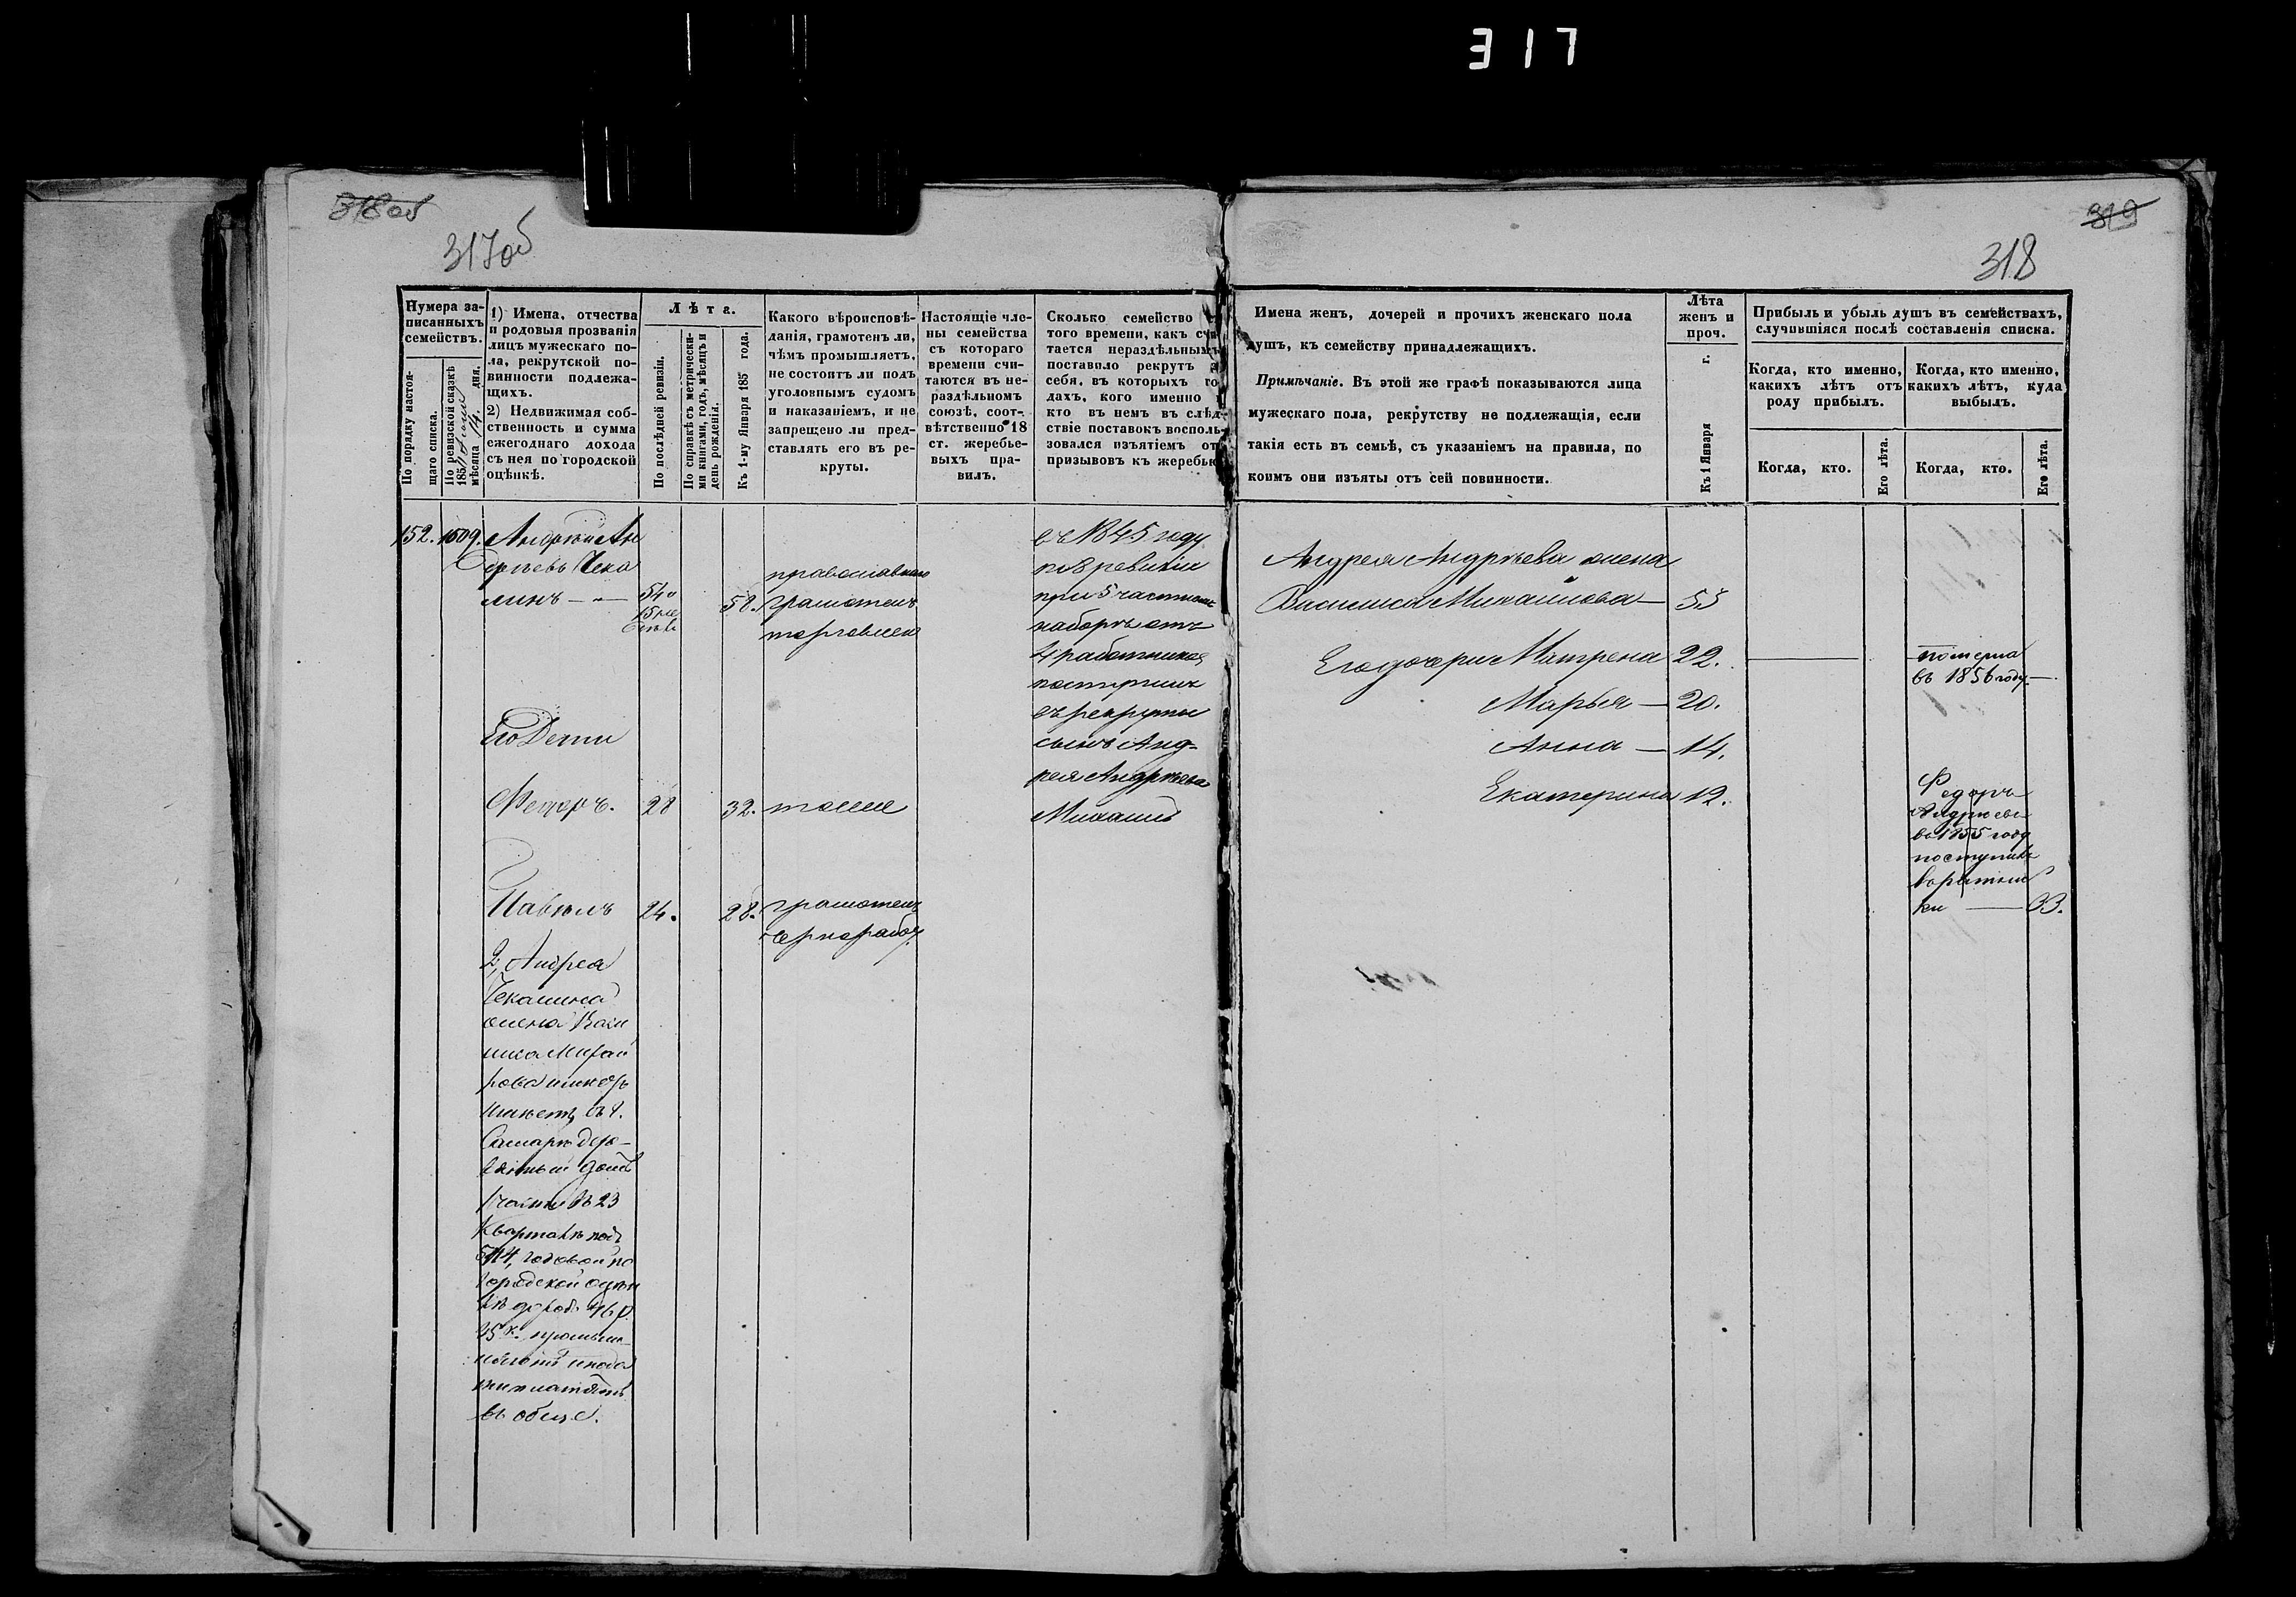 317
318 об
317 об
319
318
Нумера записанныхъ семействъ.
По порядку настоящаго списка.
По ревизской сказкѣ 185 мѣсяца 14. дня.
1) Имена, отчества
и родовыя прозванія
лицъ мужескаго по-
ла, рекрутской по-
винности подлежа-
щихъ.
2) Недвижимая соб-
ственность и сумма
ежегоднаго дохода
съ нея по городской
оцѣнкѣ.
Лѣта.
По послѣдней ревизіи.
По справкѣ съ метрически-
ми книгами, годъ, мѣсяцъ и
день рожденія.
Къ 1-му Января 185 года.
Какого вѣроисповѣ-
данія, грамотенъ ли,
чѣмъ промышляетъ,
не состоитъ ли подъ
уголовнымъ судомъ
и наказаніемъ, и не
запрещено ли пред-
ставлять его въ ре-
круты.
Настоящіе чле-
ны семейства
съ котораго
времени счи-
таются въ не-
раздѣльномъ
союзѣ, соот-
вѣтственно 18
ст. жеребье-
выхъ пра-
вилъ.
Сколько семейство
того времени, какъ счи
тается нераздѣльнымъ
поставило рекрутъ
себя, въ которыхъ го
дахъ, кого именно
кто въ немъ въ слѣд-
ствіе поставокъ восполь-
зовался изъятіемъ от
призывовъ къ жеребью
152. 1509. Андрей Ан
дреевъ Чека
линъ — 54 58.
православнаго
грамотенъ
торговлею
въ 1845 году
по 8 ревизіи
при 5 частномъ
наборѣ отъ
4 работниковъ
поступилъ
въ рекруты
сынъ Анд-
рея Андреева
Михаилъ
Его Дети
Федоръ. 28 32. тоже
Павелъ 24. 28. грамотенъ
чернорабоч.
2, Андрея
Чекалина
жена Васи
лиса Михай
лова
имѣетъ въ г.
Самарѣ дере-
вянный домъ
1 части въ 23
кварталѣ подъ
годовой по
городской оцѣн
кѣ доходъ 46 р.
35 к.
въ обще.
Имена женъ, дочерей и прочихъ женскаго пола
душъ, къ семейству принадлежащихъ.
Примѣчаніе. Въ этой же графѣ показываются лица
мужескаго пола, рекрутству не подлежащія, если
такія есть въ семьѣ, съ указаніемъ на правила, по
коимъ они изъяты отъ сей повинности.
Лѣта
женъ и
проч.
Къ 1 Января г.
Прибыль и убыль душъ въ семействахъ,
случившіяся послѣ составленія списка.
Когда, кто именно,
какихъ лѣтъ отъ
роду прибылъ.
Когда, кто именно,
какихъ лѣтъ, куда
выбылъ.
Когда, кто.
Его лѣта.
Когда, кто.
Его лѣта.
Андрея Андреева жена
Василиса Михайлова — 55
Его дочери Матрена 22. — померла
въ 1856 году —
Марья — 20.
Анна — 14.
Екатерина 12.
Федоръ
Андреевъ
въ 1855 году
поступилъ
въ ратни
ки — 33.